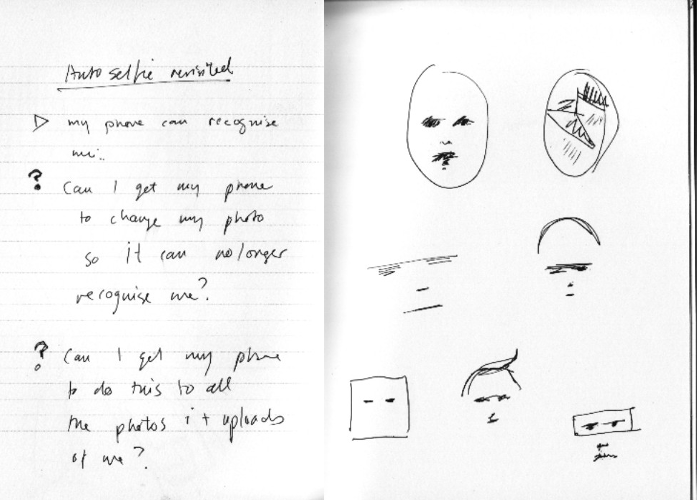 Auto selfie revisited
my phone can recognise
me.
? Can I get my phone
to change my photo
so it can no longer
recognise me?
? Can I get my phone
to do this to all
the photos it uploads
of me?